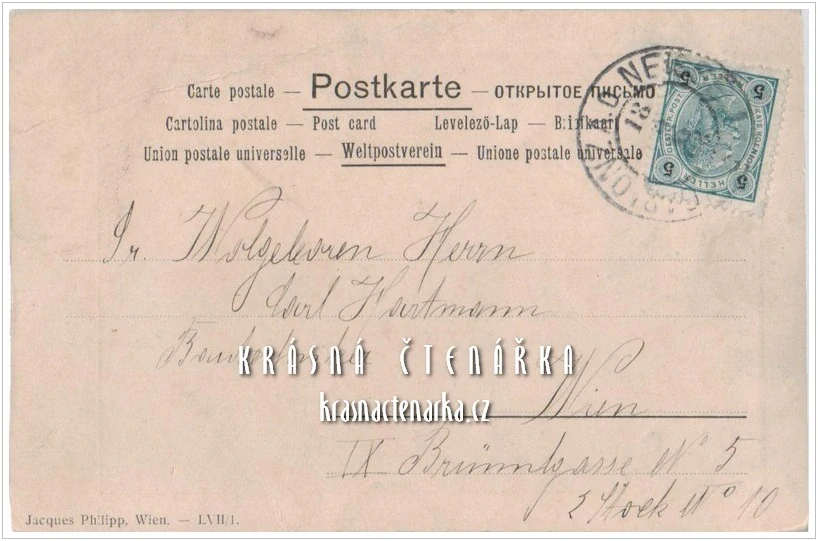 Carte postale — Postkarte — ОТКРЫТОЕ ПИСЬМО
Cartolina postale — Post card Levelezö-Lap — Briefkaart
Union postale universelle — Weltpostverein — Unione postale universale
5 5
KAIS. KOENIGL.
OESTERR. POST
HELLER HELLER
5 5
18
Sr. Wolgeboren Herrn
Carl Hartmann
KRÁSNÁ ČTENÁŘKA
krasnactenarka.cz
Wien
IX Brünnlgasse No 5
2 Stock No 10
Jacques Philipp, Wien. — LVII/1.